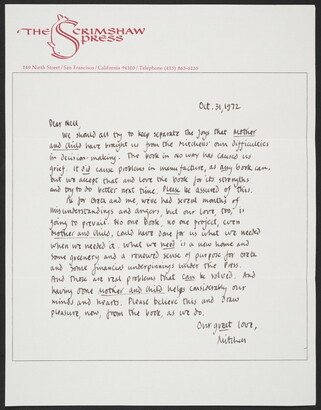 THE SCRIMSHAW
PRESS
149 Ninth Street / San Francisco / California 94103 / Telephone (415) 863-4135
Oct. 31, 1972
Dear Nell,
We should all try to keep separate the joys that Mother
and Child have brought us from the Mitchens' own difficulties
in decision-making. The book in no way has caused us
grief. It did cause problems in manufacture, as any book can,
but we accept that and love the book for its strengths
and try to do better next time. Please be assured of this.
As for Greta and me, we've had several months of
misunderstandings and angers, but our love, too, is
going to prevail. No one book, no one project, even
Mother and Child, could have done for us what we needed
when we needed it. What we need is a new home and
some greenery and a renewed sense of purpose for Greta
and some financial underpinnings under the Press.
And those are real problems that can be solved. And
having done Mother and Child helps considerably our
minds and hearts. Please believe this and draw
pleasure, now, from the book, as we do.
Our great love,
Mitchen